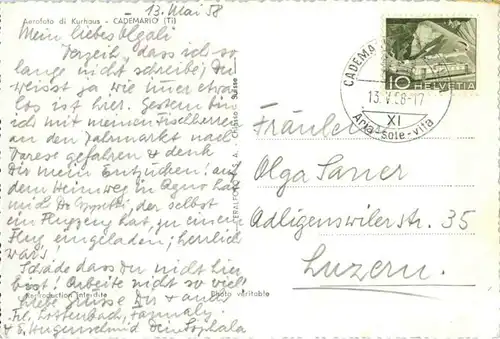 13. Mai 58
Aerofoto di Kurhaus - CADEMARIO (Ti)
Mein liebes Olgali
Verzeih, dass ich so
lange nicht schreibe; Du
weisst ja wie immer etwas
los ist hier. Gestern bin
ich mit meinen
an den Jahrmarkt nach
Varese gefahren & denk
Dir mein Entzücken! auf
dem Heimweg in Agno hat
mich Dr. der selbst
ein Flugzeug hat, zu einem
Flug eingeladen; herrlich
war's.
Schade dass Du nicht hier
bist! Arbeite nicht so viel
Liebe Grüsse Dir & auch
Frl. Lottenbach,
& E. Hugenschmid Dein
Riproduction interdite
Photo véritable
S. A. - Chiasso - Suisse
10
HELVETIA
CADEMA
13.V.58-17
XI
Aria-sole-vita
Fräulein
Olga Saner
Adligenswilerstr. 35
Luzern.